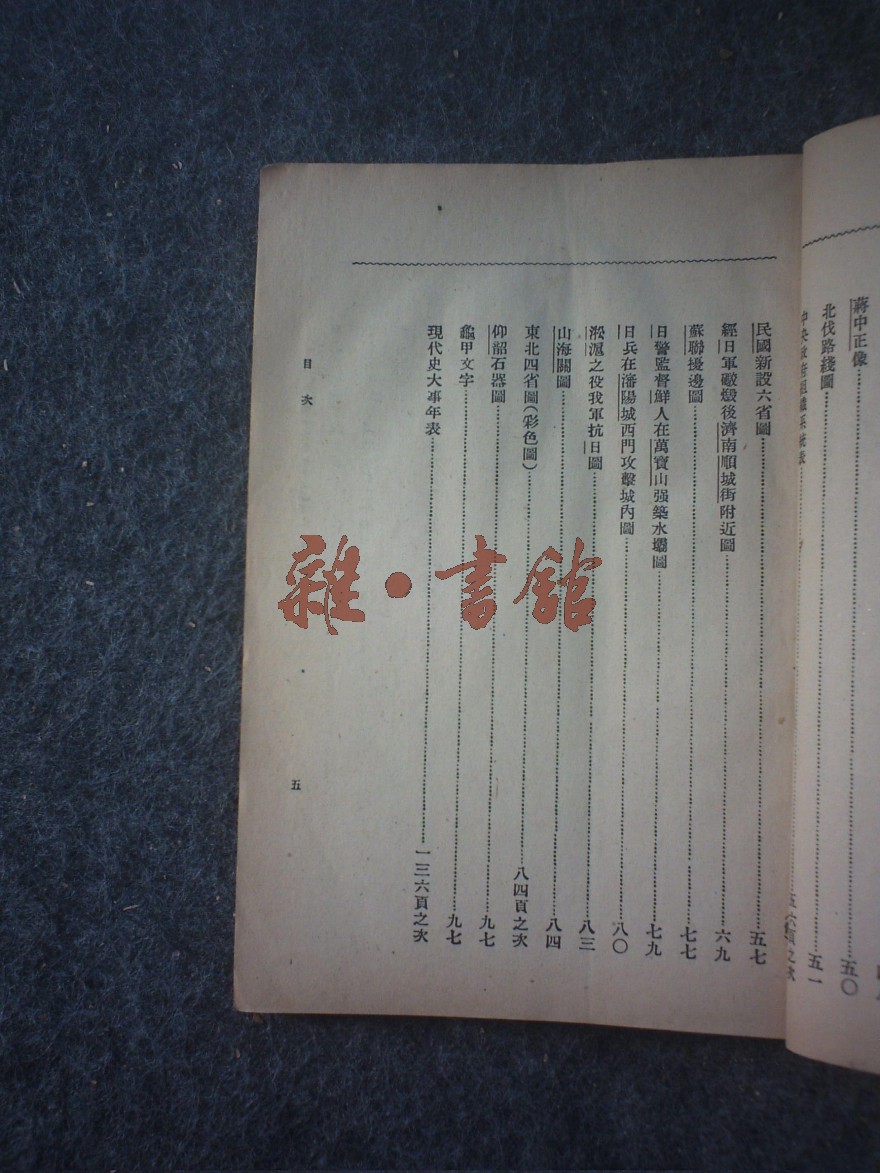 蔣中正像……五〇
北伐路綫圖……五一
中央政府組織系統表……之次
民國新設六省圖……五七
經日軍礮燬後濟南順城街附近圖……六九
蘇聯擾邊圖……七七
日警監督鮮人在萬寶山强築水壩圖……七九
日兵在瀋陽城西門攻擊城內圖……八〇
淞滬之役我軍抗日圖……八三
山海關圖……八四
東北四省圖(彩色圖)……八四頁之次
仰韶石器圖……九七
龜甲文字……九七
現代史大事年表……一三六頁之次
目次
五
雜·書館